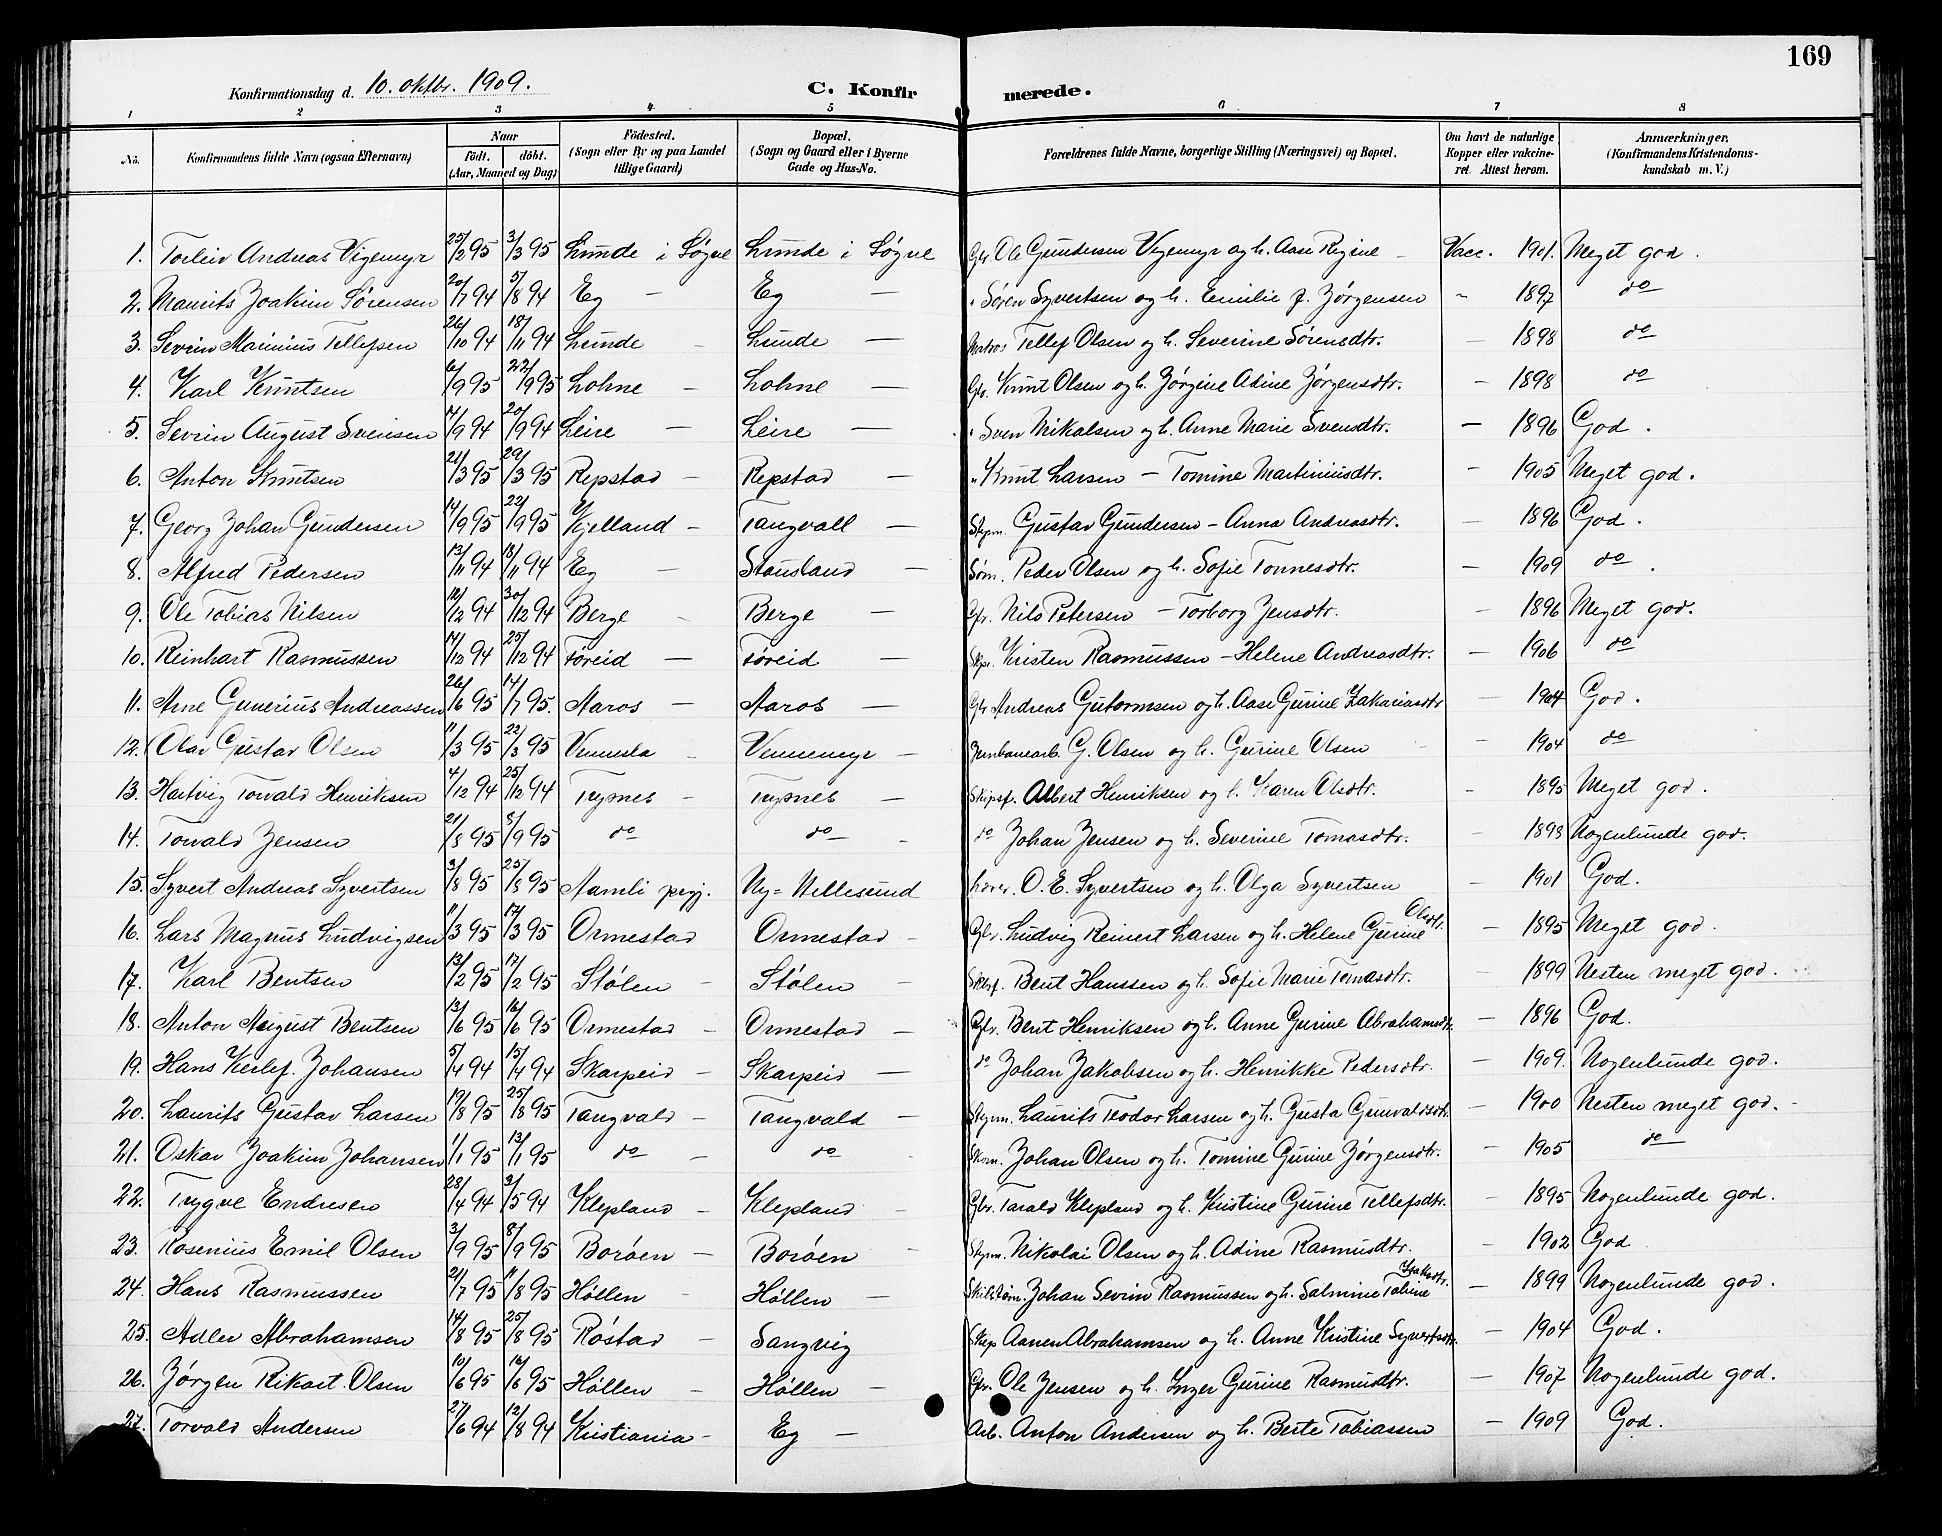 169
Konfirmationsdag d. 10. oktbr. 1909. C. Konfirmerede.
1 2 3 4 5 6 7 8
No. Konfirmandens fulde Navn (ogsaa Efternavn) Naar födt. döbt. (Aar, Maaned og Dag) Födested. (Sogn eller By og paa Landet tillige Gaard) Bopæl. (Sogn og Gaard eller i Byerne Gade og Hus-No. Forældrenes fulde Navne, borgerlige Stilling (Næringsvei) og Bopæl. Om havt de naturlige Kopper eller vakcineret. Attest herom. Anmærkninger. (Konfirmandens Kristendomskundskab m. V.)
1. Torleiv Andreas Vigemyr 25/2 95 3/3 95 Lunde i Søgne Lunde i Søgne Gbr. Ole Gundersen Vigemyr og h. Aase Regine - Vacc. 1901. Meget god.
2. Maurits Joakim Sørensen 20/7 94 5/8 94 Eg — Eg — " Søren Syvertsen og h. Emilie f. Jørgensen - 1897 do
3. Sevrin Marinius Tellefsen 26/10 94 18/11 94 Lunde - Lunde — Matros Tellef Olsen og h. Severine Sørensdtr. — 1898 do
4. Karl Knutsen 6/9 95 22/9 95 Lohne - Lohne — Gbr. Knut Olsen og h. Jørgine Adine Jørgensdtr. - 1898 do
5. Sevrin August Svensen 14/9 94 20/9 94 Leire — Leire — " Sven Mikalsen og h. Anne Marie Svensdtr. — 1896 God.
6. Anton Knutsen 21/3 95 29/3 95 Repstad - Repstad — " Knut Larsen — Tomine Martiniusdtr. - 1905 Meget god.
7. Georg Johan Gundersen 14/9 95 22/9 95 Kjelland - Tangvall — Stym. Gustav Gundersen - Anna Andreasdtr. — 1896 God.
8. Alfred Pedersen 13/11 94 18/11 94 Eg — Stausland — Søm. Peder Olsen og h. Sofie Tonnesdtr. — 1909 do.
9. Ole Tobias Nilsen 12/12 94 30/12 94 Berge - Berge — Gbr. Nils Petersen — Torborg Jensdtr. — 1896 Meget god.
10. Reinhart Rasmussen 14/12 94 25/12 94 Føreid — Føreid — Skpr. Kristen Rasmussen - Helene Andreasdtr. — 1906 do
11. Arne Gunerius Andreassen 26/6 95 14/7 95. Aaros — Aaros — Gbr Andreas Gutormsen og h. Aase Gurine Zakariasdtr — 1904 God.
12. Olav Gustav Olsen 11/3 95 22/3 95 Vennesla - Vennemyr — Jernbanearb. G. Olsen og h. Gurine Olsen - 1904 do
13. Hartvig Torvald Henriksen 4/12 94 25/12 94 Trysnes - Trysnes — Skipsf. Albert Henriksen og h. Karen Olsdtr. - 1895 Meget god.
14. Torvald Jensen 21/8 95 8/9 95 do do - do Johan Jensen og h. Severine Tomasdtr. - 1893 Nogenlunde god.
15. Syvert Andreas Syvertsen 3/8 95 25/8 95 Aamli prgj. Ny=Hellesund Lærer. O. E. Syvertsen og h. Olga Syvertsen - 1901 God.
16. Lars Magnus Ludvigsen 11/3 95 17/3 95 Ormestad Ormestad - Gbr. Ludvig Reinert Larsen og h. Helene Gurine Olsdtr. - 1895 Meget god.
17. Karl Bentsen 13/2 95 17/2 95 Stølen - Stølen - Skpsf. Bent Hanssen og h. Sofie Marie Tomasdtr. - 1899 Nesten meget god.
18. Anton August Bentsen 13/6 95 16/6 95 Ormestad - Ormestad — Gbr. Bent Henriksen og h. Anne Gurine Abrahamsdtr. - 1896 God.
19. Hans Kerlef. Johansen 5/4 94 15/4 94 Skarpeid - Skarpeid — do Johan Jakobsen og h. Henrikke Pedersdtr. - 1909. Nogenlunde god.
20. Laurits Gustav Larsen 19/8 95 25/8 95 Tangvald - Tangvald — Stym. Laurits Teodor Larsen og h. Gusta Gunvaldsdtr. - 1900 Nesten meget god. -
21. Oskar Joakim Johansen 1/1 95 13/1 95 do - do Skom. Johan Olsen og h. Tomine Gurine Jørgensdtr. - 1905 do
22. Trygve Endresen 28/4 94 3/5 94 Klepland - Klepland - Gbr. Tarald Klepland og h. Kristine Gurine Tellefsdtr. - 1895 Nogenlunde god.
23. Rosenius Emil Olsen 3/9 95 8/9 95 Borøen - Borøen — Stym. Nikolai Olsen og h. Adine Rasmusdtr. - 1902 God
24. Hans Rasmussen 21/7 95 11/8 95 Høllen - Høllen - Johan Sevrin Rasmussen og h. Salmine Tobine Isaksdtr. - 1899 Nogenlunde god.
25. Adler Abrahamsen 14/8 95 25/8 95 Røstad - Sangvig Skip Aanen Abrahamsen og h. Anne Kristine Syvertsdtr. - 1904 God.
26. Jørgen Rikart. Olsen 10/6 95 16/6 95 Høllen - Høllen — Gbr. Ole Jensen og h. Inger Gurine Rasmusdtr. - 1907 Nogenlunde god.
27. Torvald Andersen 27/6 94 12/8 94 Kristiania - Eg — Arb. Anton Andersen og h. Berte Tobiassen - 1909 God.